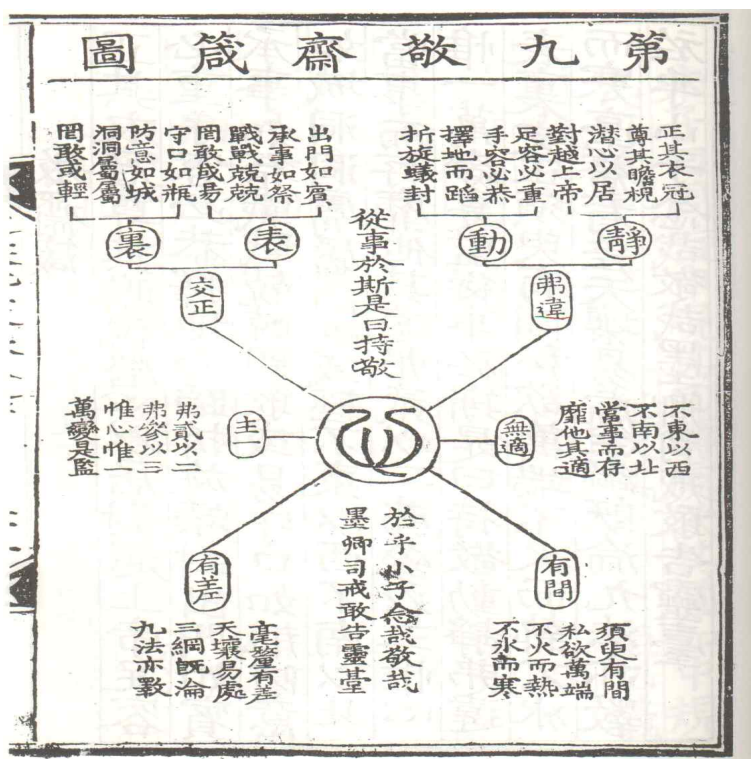 第九敬齋箴圖
正其衣冠
尊其瞻視
潛心以居
對越上帝
足容必重
手容必恭
擇地而蹈
折旋蟻封
靜
動
弗違
從事於斯是曰持敬
出門如賓
承事如祭
戰戰兢兢
罔敢或易
守口如瓶
防意如城
洞洞屬屬
罔敢或輕
表
裏
交正
不東以西
不南以北
當事而存
靡他其適
無適
心
主一
弗貳以二
弗參以三
惟心惟一
萬變是監
有間
須臾有間
私欲萬端
不火而熱
不氷而寒
於乎小子念哉敬哉
墨卿司戒敢告靈臺
有差
毫釐有差
天壤易處
三綱旣淪
九法亦斁